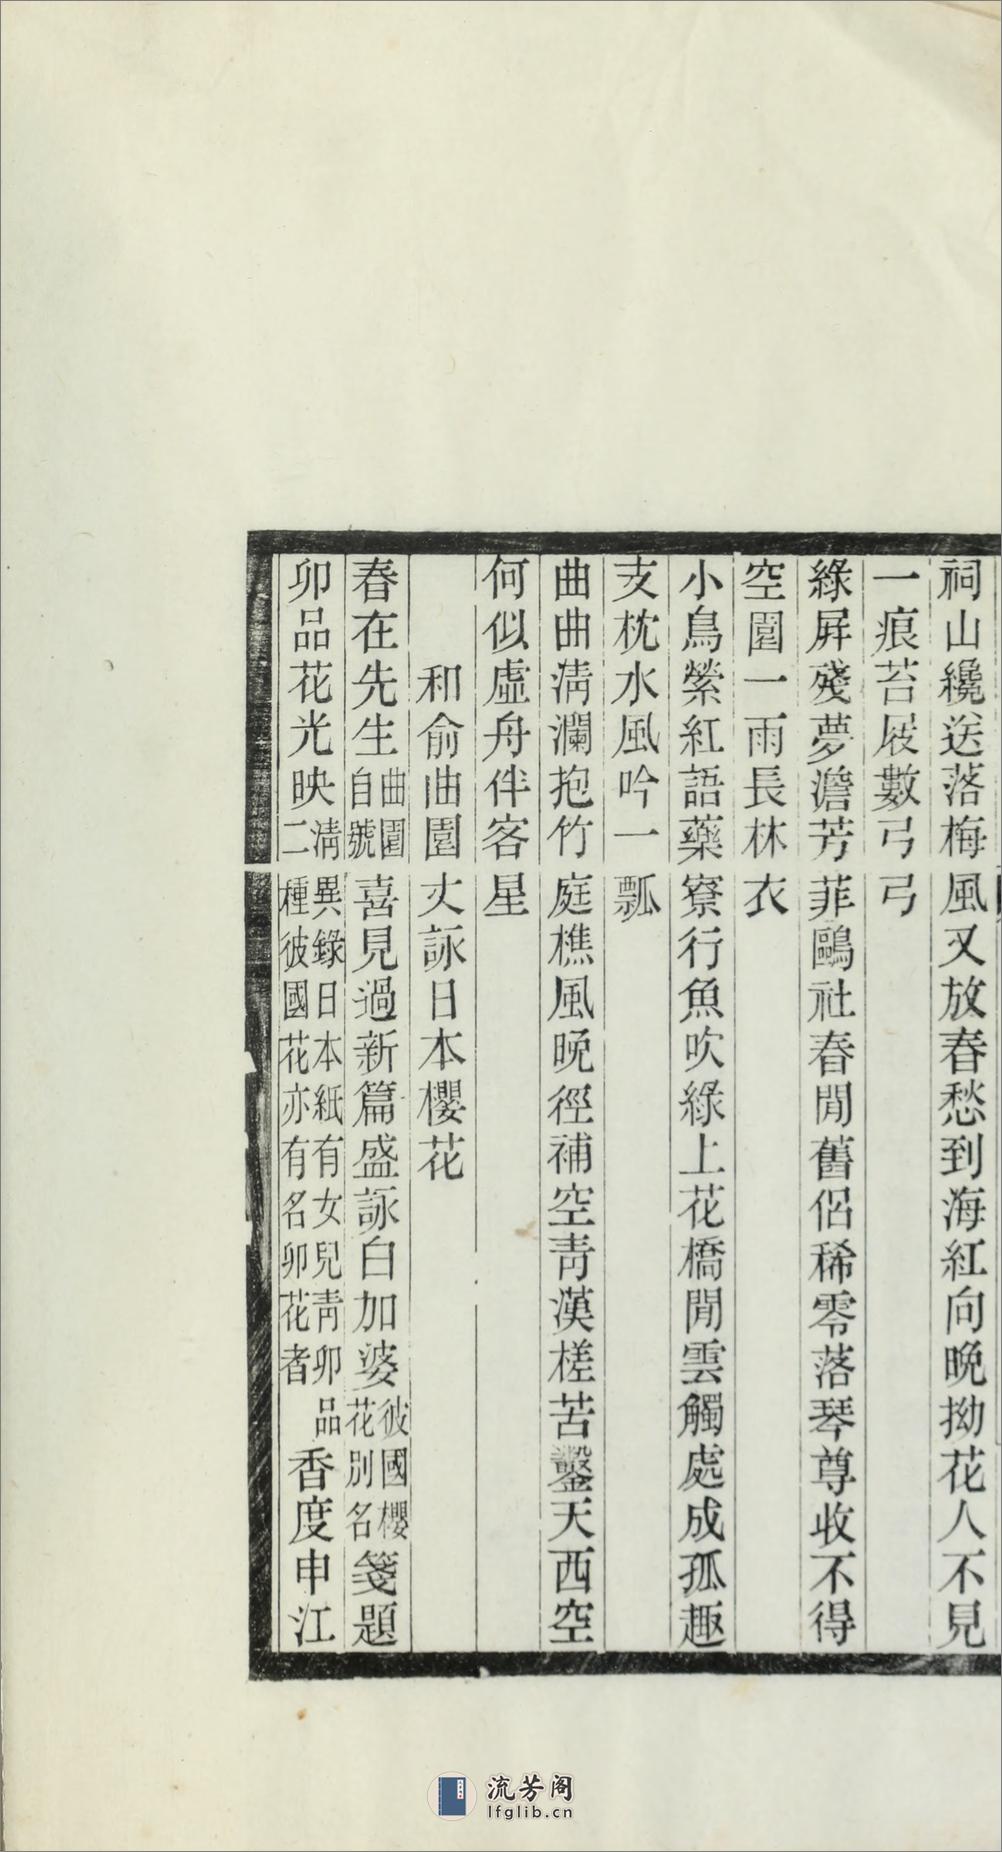 祠山纔送落梅風又放春愁到海紅向晚拗花人不見
一痕苔屐數弓弓
綠屏殘夢澹芳菲鷗社春閒舊侶稀零落琴尊收不得
空園一雨長林衣
小鳥縈紅語藥寮行魚吹綠上花橋閒雲觸處成孤趣
支枕水風吟一瓢
曲曲淸瀾抱竹庭樵風晚徑補空靑漢槎苦鑿天西空
何似虛舟伴客星
和俞曲園丈詠日本櫻花
春在先生曲園自號喜見過新篇盛詠白加婆彼國櫻花別名箋題
卯品花光映淸異錄日本紙有女兒靑卯品二種彼國花亦有名卯花者香度申江
流芳阁
lfglib.cn